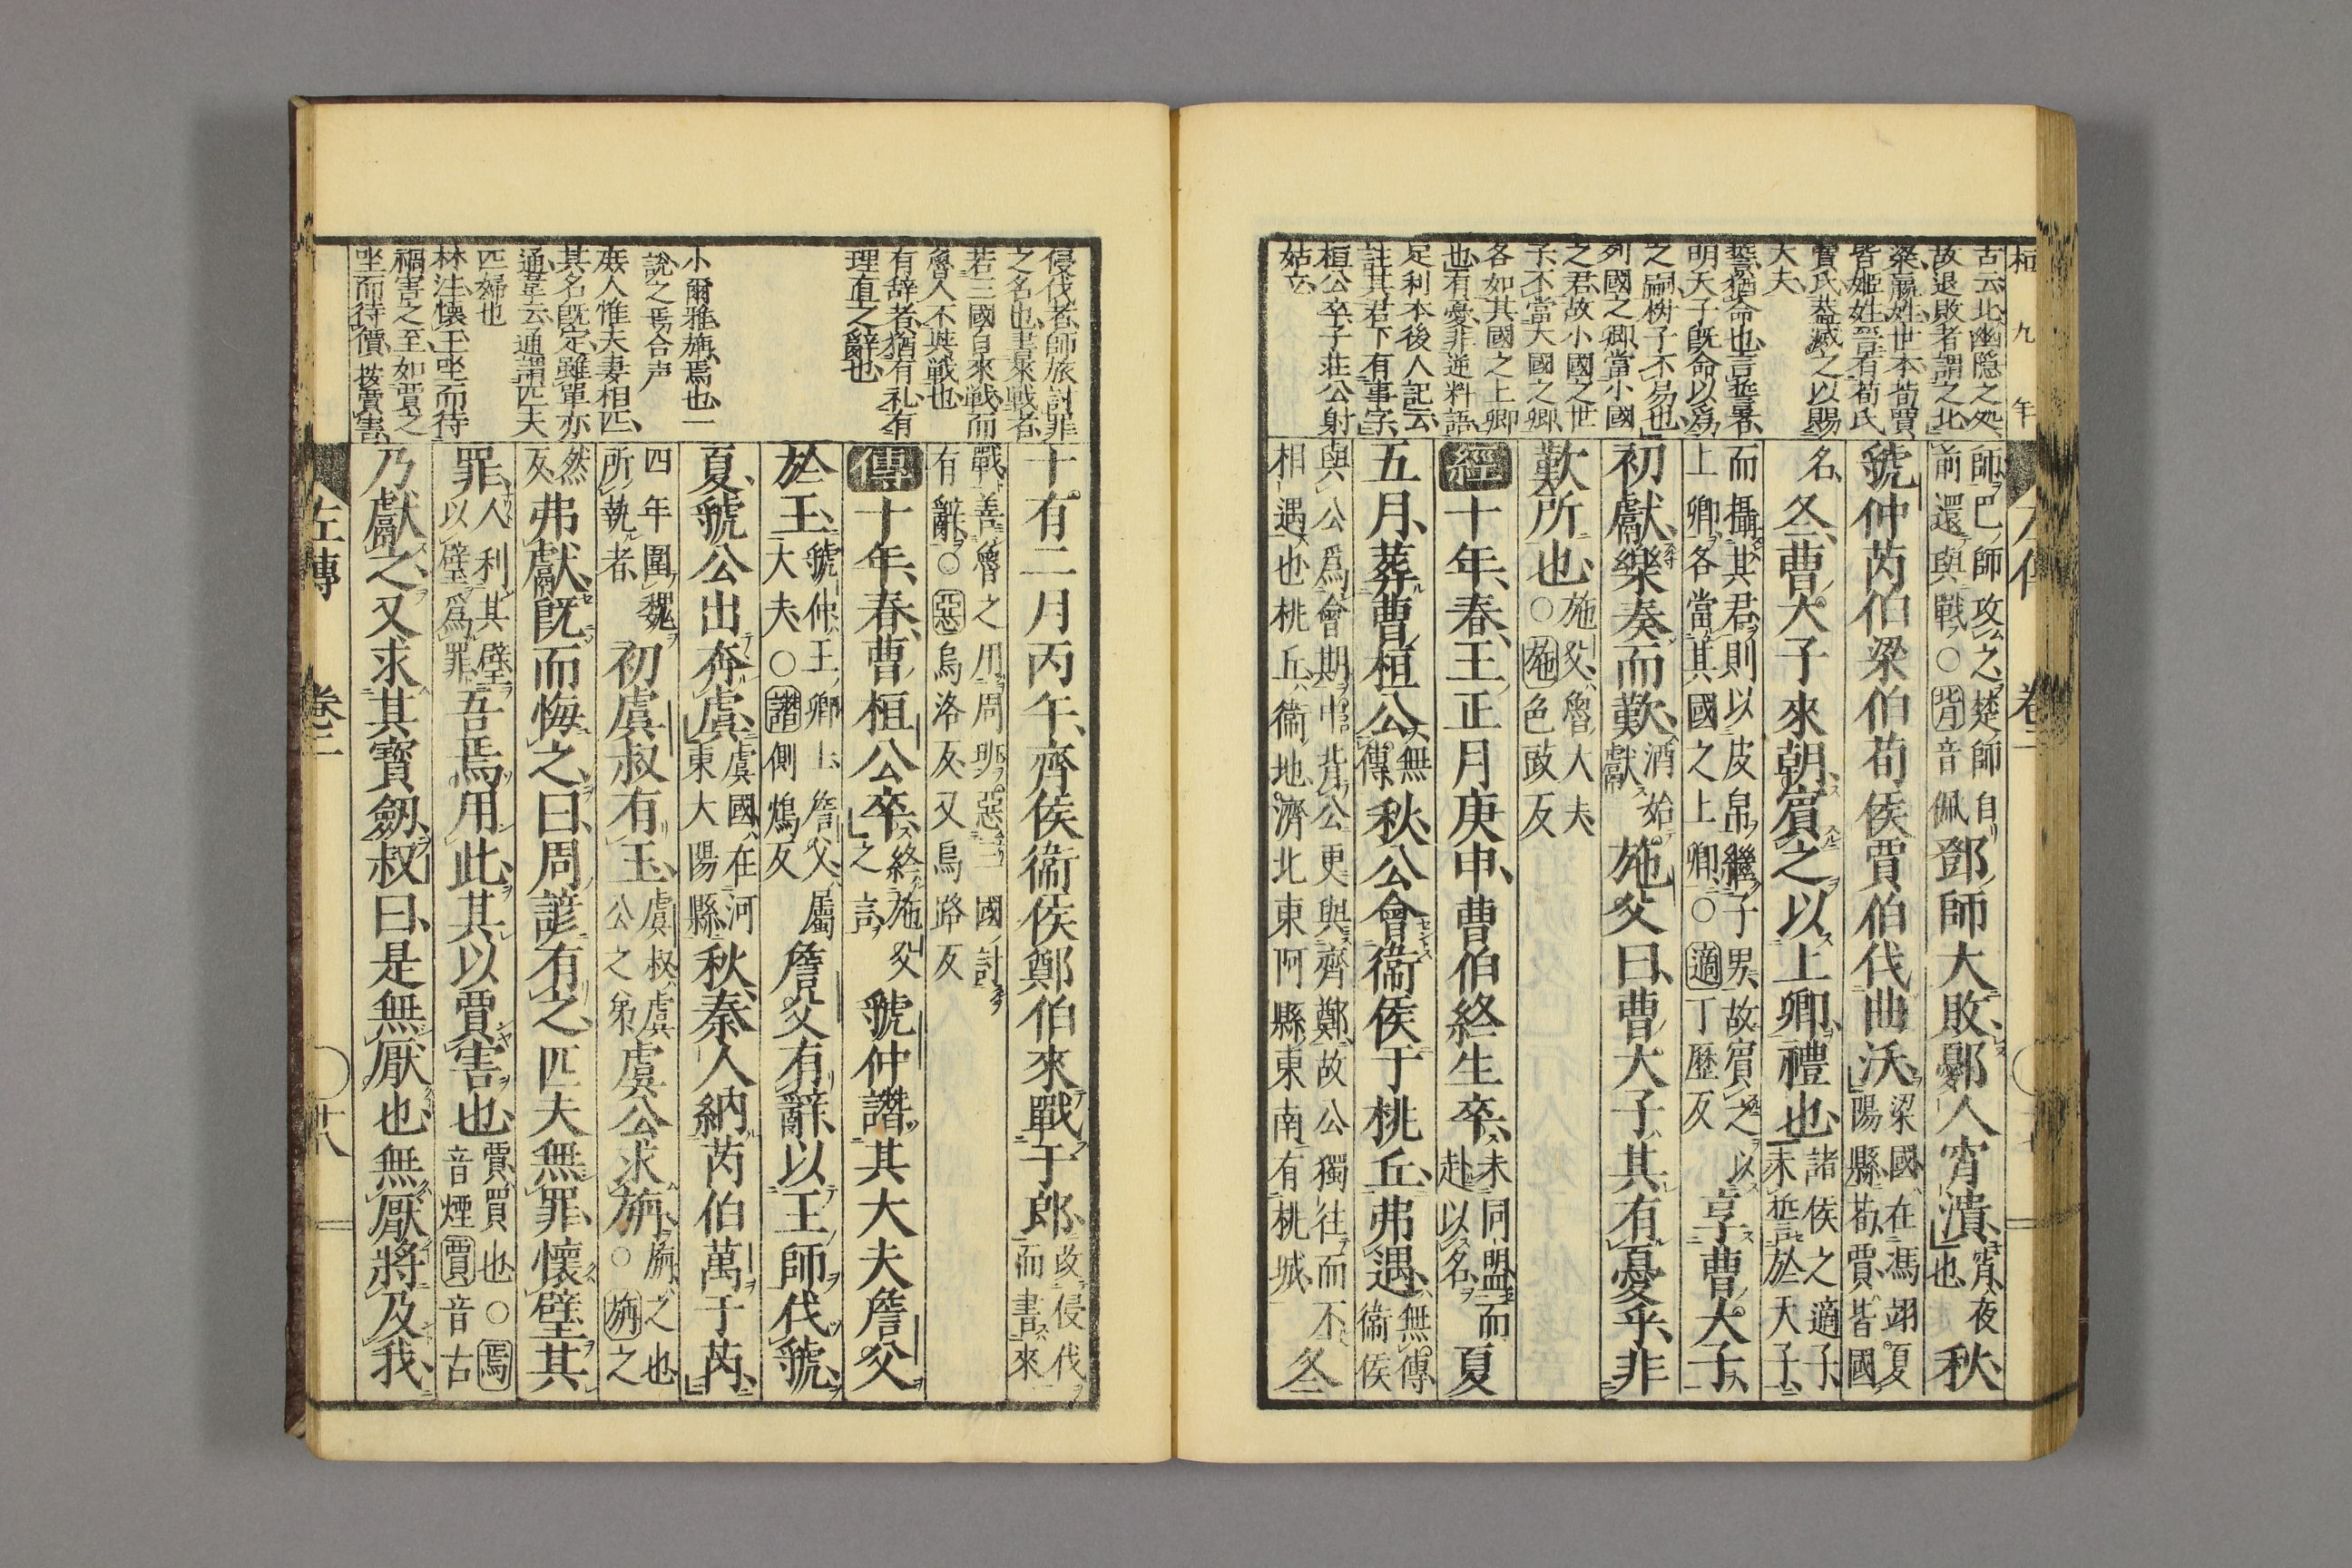 桓 九 年
古云北幽隠之処
故退敗者謂之北
梁嬴姓世本荀賈
皆姫姓晋有荀氏
賈氏蓋滅之以賜
大夫
誓猶命也言誓者
明天子既命以爲
之嗣樹子不易也
列國之卿當小國
之君故小國之世
子不當大國之卿
各如其國之上卿
也有憂非逆料語
足利本後人記云
註其君下有事字
桓公卒子荘公射
姑立
師巴師攻之楚師自前還與戰○背音佩鄧師大敗鄾人宵潰宵夜也秋
虢仲芮伯梁伯荀侯賈伯伐曲沃梁國在馮翊夏陽縣荀賈皆國
名冬曹大子來朝賓之以上卿禮也諸侯之適子未誓於天子
而攝其君則以皮帛繼子男故賓之以上卿各當其國之上卿○適丁歷反享曹大子
初獻樂奏而歎酒始獻施父曰曹大子其有憂乎非
歎所也施父魯大夫○施色豉反
經十年春王正月庚申曹伯終生卒未同盟而赴以名夏
五月葬曹桓公無傳秋公會衞侯于桃丘弗遇無傳衞侯
與公爲會期中背公更與齊鄭故公獨往而不相遇也桃丘衞地濟北東阿縣東南有桃城冬
侵伐者師旅討罪
之名也書來戰者
若三國自來戦而
魯人不與戦也
有辞者猶有礼有
理直之辭也
小爾雅旃焉也一
説之焉合声
庶人惟夫妻相匹
其名既定雖單亦
通韋云通謂匹夫
匹婦也
林注懐玉坐而待
禍害之至如賈之
坐而待價按賈害
十有二月丙午齊侯衞侯鄭伯來戰于郎改侵伐而書來
戰善魯之用周班惡三國討有辭○惡烏洛反又烏路反
傳十年春曹桓公卒終施父之言虢仲譖其大夫詹父
於王虢仲王卿士詹父屬大夫○譖側鴆反詹父有辭以王師伐虢
夏虢公出奔虞虞國在河東大陽縣秋秦人納芮伯萬于芮
四年圍魏所執者初虞叔有玉虞叔虞公之弟虞公求旃旃之也○旃之
然反弗獻既而悔之曰周諺有之匹夫無罪懷璧其
罪人利其璧以璧爲罪吾焉用此其以賈害也賈買也○焉音煙賈音古
乃獻之又求其寶劒叔曰是無厭也無厭將及我
左傳 卷二 十八